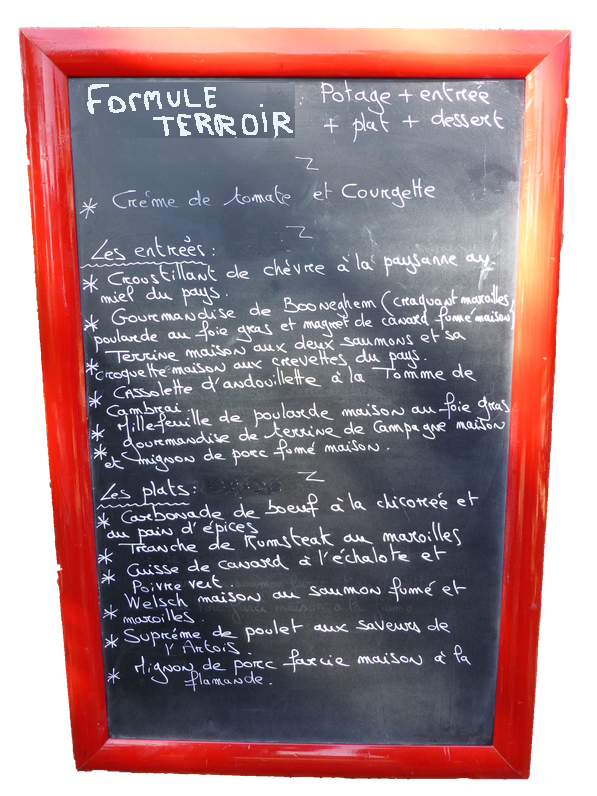 FORMULE : Potage + entrée
TERROIR + plat + dessert
* Crème de tomate et Courgette
Les entrées :
* Croustillant de chèvre à la paysanne au
miel du pays.
* Gourmandise de Booneghem (craquant maroilles,
poularde au foie gras et magret de canard fumé maison)
* Terrine maison aux deux saumons et sa
croquette maison aux crevettes du pays.
* Cassolette d'andouillette à la Tomme de
Cambrai
* Millefeuille de poularde maison au foie gras
* gourmandise de terrine de Campagne maison
et mignon de porc fumé maison.
Les plats :
* Carbonade de boeuf à la chicorée et
au pain d'épices
* Tranche de Rumsteak au maroilles
* Cuisse de canard à l'échalote et
Poivre vert.
* Welsch maison au saumon fumé et
maroilles.
* Suprême de poulet aux saveurs de
l'Artois.
* Mignon de porc farcie maison à la
flamande.